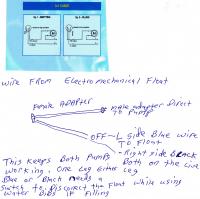 wire From Electromechanical Float
Female ADAPTER
male adapter Direct
To Pump
OFF - L side Blue wire
To Float
- Right side black
This keeps Both Pumps Both on the live
working, One Leg Either Leg
Blue or Black needs a
Switch to Disconect the Float while using
water Dibs if Filling